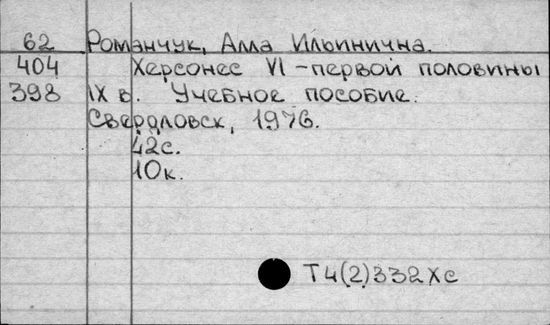 62 Романчук, Алла Ильинична.
404 Херсонес VI - первой половины
398 IX в. Учебное пособие.
Свердловск, 1976.
42с.
10к.
Т4(2)332Хс